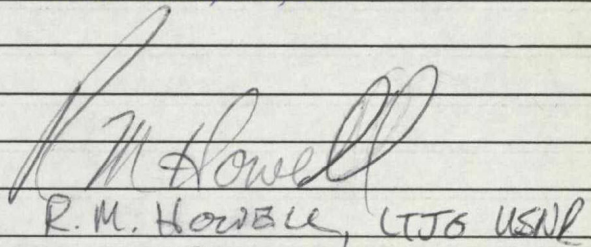 R M Howell
R. M. HOWELL, LTJG USNR